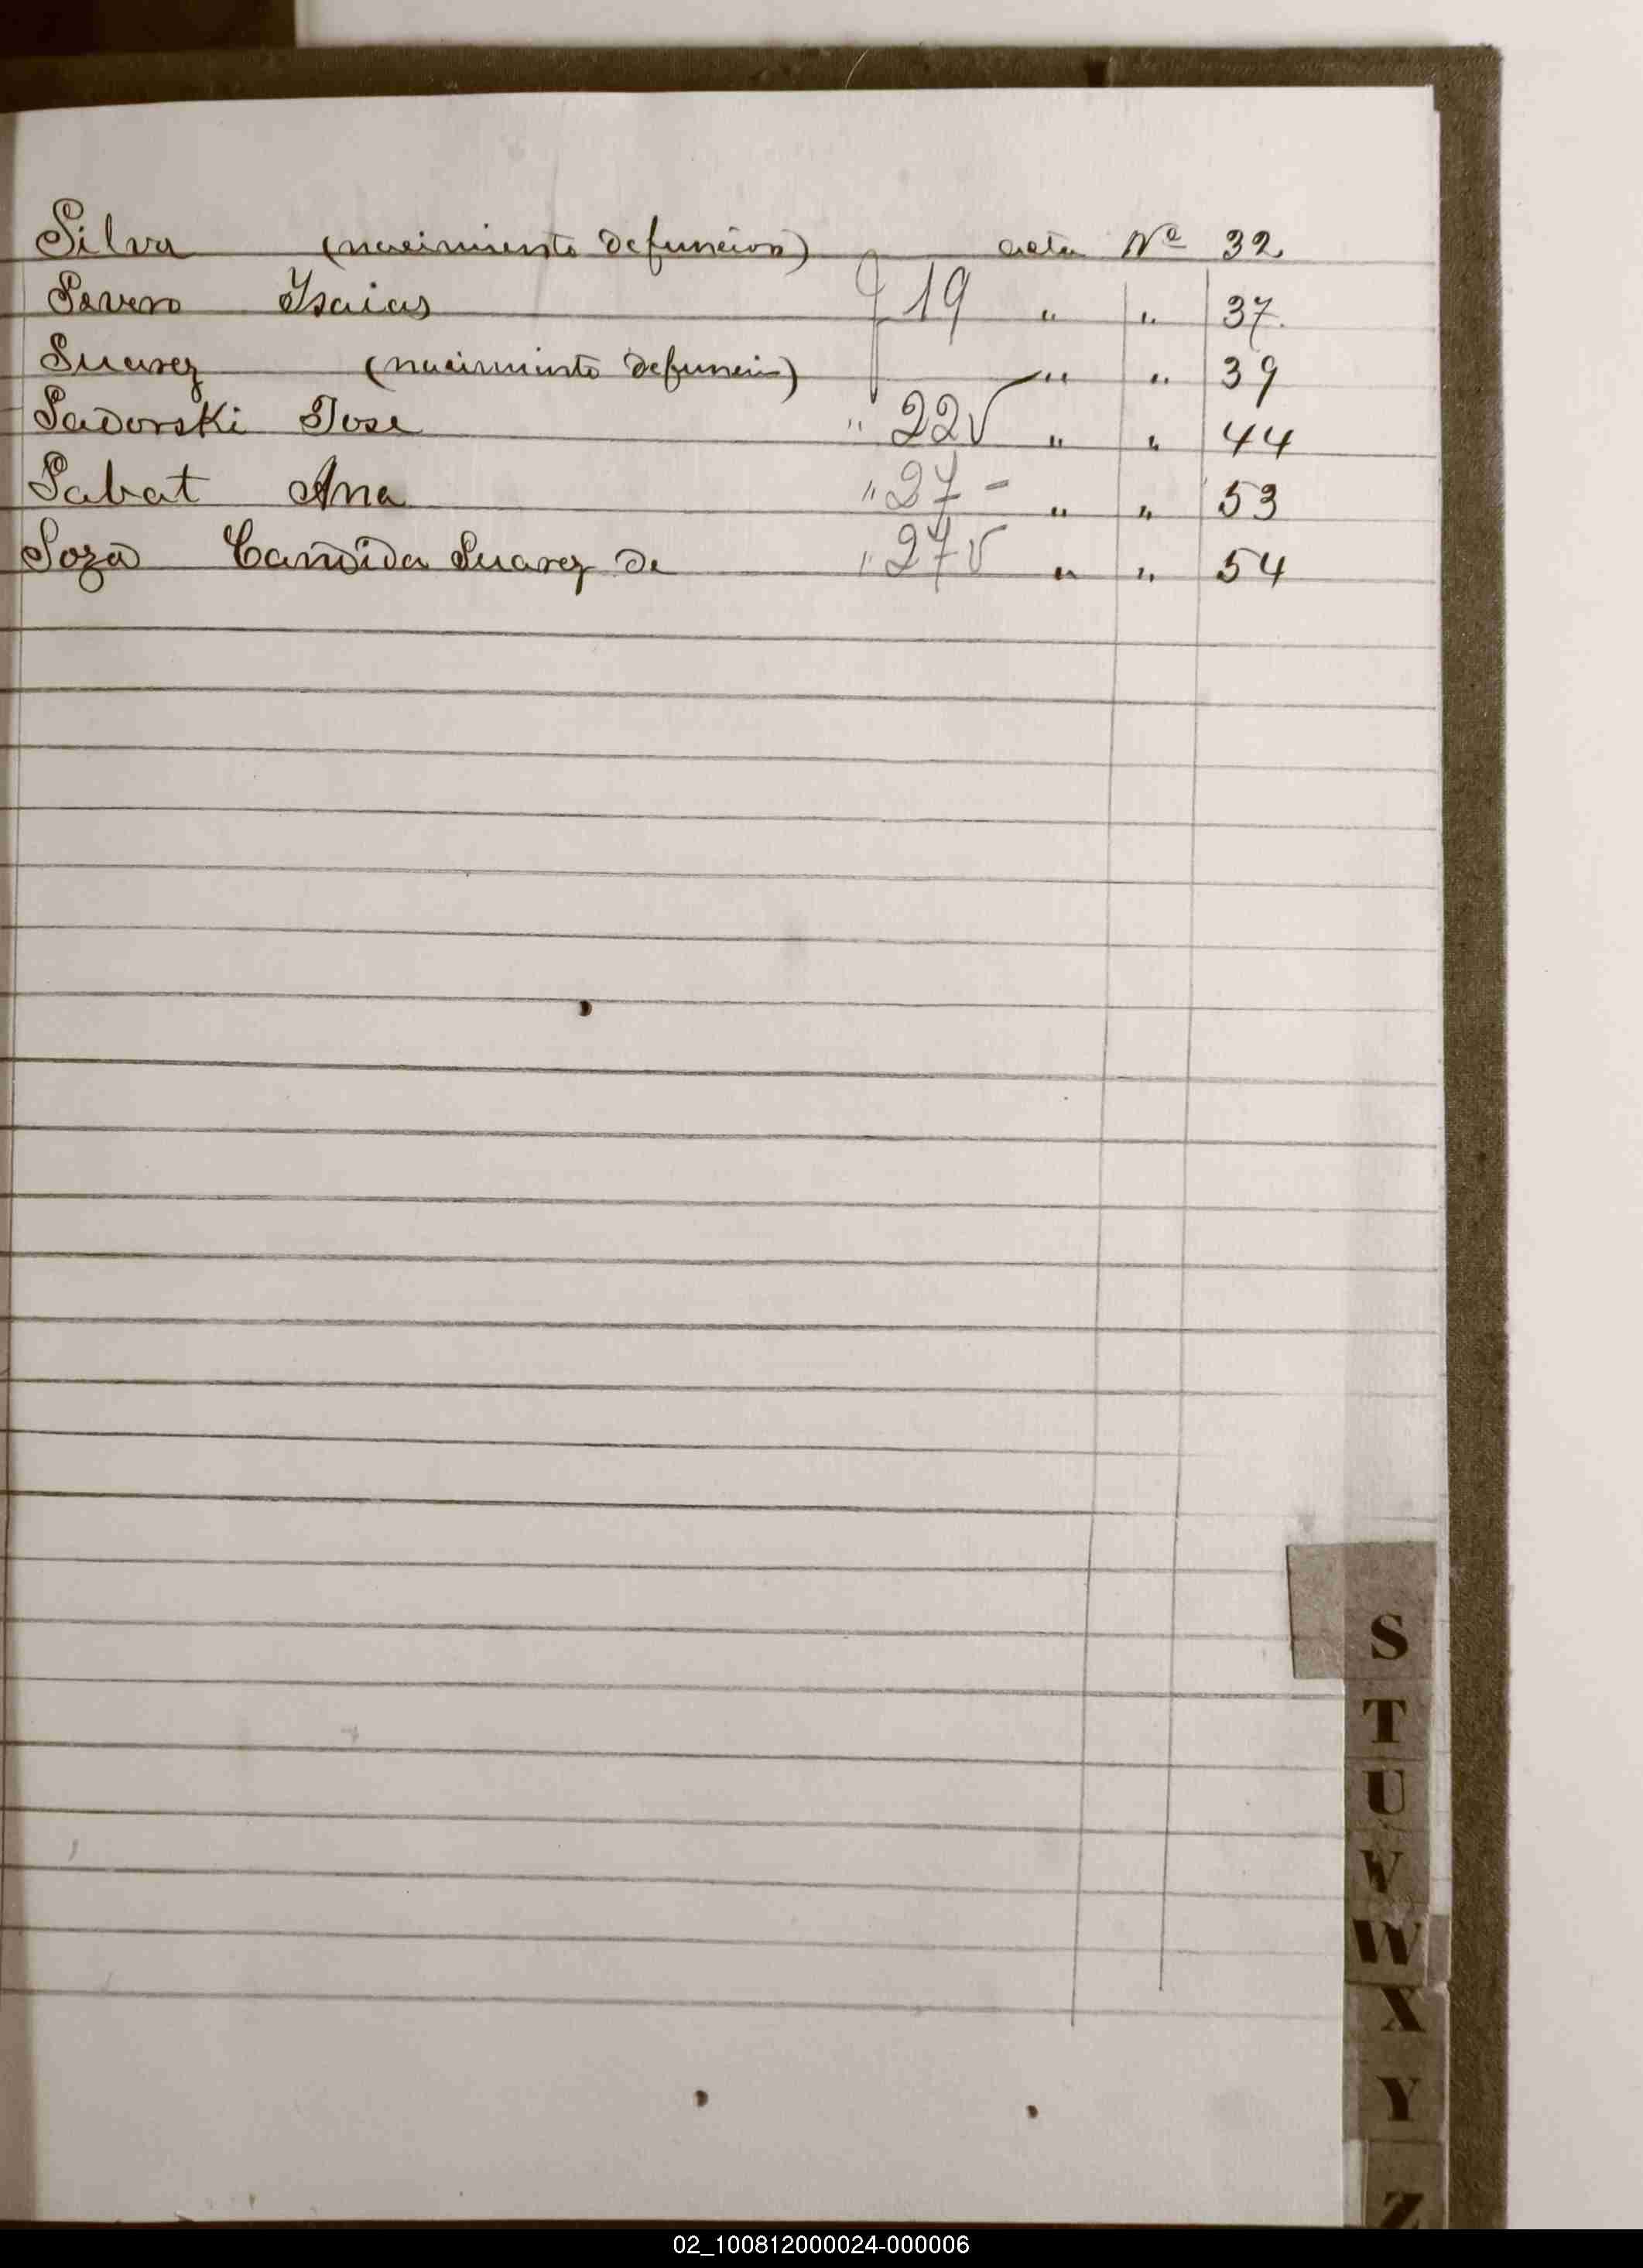 Silva (nacimiento defuncion) acta Nº 32
Severo Isaias f 19 " " 37.
Suarez (nacimiento defuncion) " " 39
Sadorski Jose " 22v " " 44
Sabat Ana " 27 - " " 53
Soza Candida Suarez de " 27v " " 54
S
T
U
V
W
X
Y
Z
02_100812000024-000006